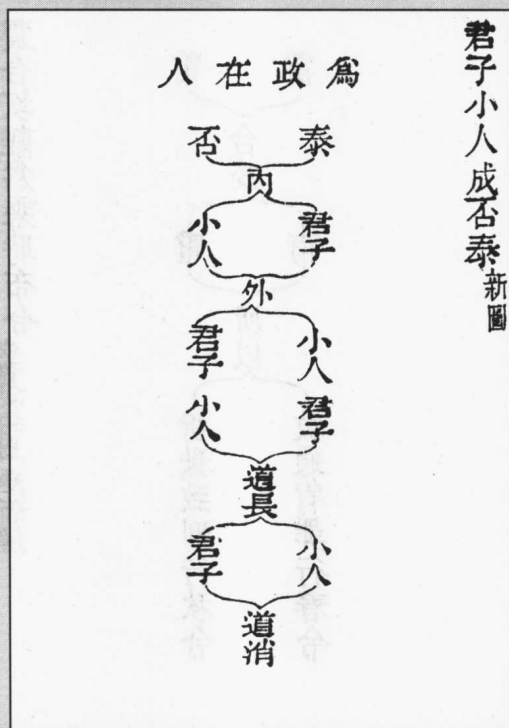 君子小人成否泰新圖
爲政在人
泰 否
內
君子 小人
外
小人 君子
君子 小人
道長
小人 君子
道消